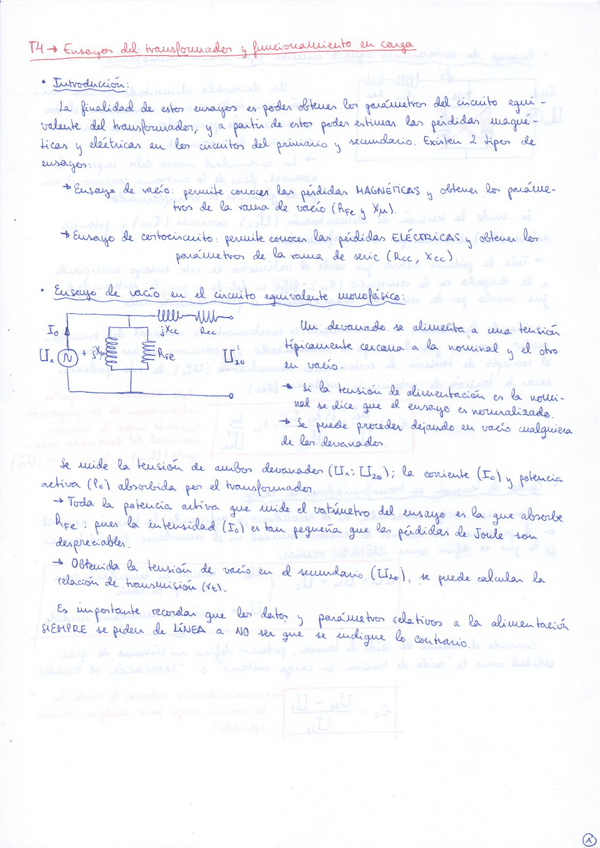 T4 → Ensayos del transformador y funcionamiento en carga
• Introducción:
La finalidad de estos ensayos es poder obtener los parámetros del circuito equi-
valente del transformador, y a partir de estos poder estimar las pérdidas magné-
ticas y eléctricas en los circuitos del primario y secundario. Existen 2 tipos de
ensayos
→ Ensayo de vacío: permite conocer las pérdidas MAGNÉTICAS y obtener los paráme-
tros de la rama de vacío (RFe y Xμ).
→ Ensayo de cortocircuito: permite conocer las pérdidas ELÉCTRICAS y obtener los
parámetros de la rama de serie (Rcc, Xcc).
• Ensayo de vacío en el circuito equivalente monofásico:
I0
U1
N
+
jXμ
RFE
jXcc
Rcc
U20'
Un devanado se alimenta a una tensión
típicamente cercana a la nominal y el otro
en vacío.
→ Si la tensión de alimentación es la nomi-
nal se dice que el ensayo es normalizado.
→ Se puede proceder dejando en vacío cualquiera
de los devanados.
Se mide la tensión de ambos devanados (U1; U20); la corriente (I0) y potencia
activa (P0) absorbida por el transformador.
→ Toda la potencia activa que mide el vatímetro del ensayo es la que absorbe
RFe; pues la intensidad (I0) es tan pequeña que las pérdidas de Joule son
despreciables.
→ Obtenida la tensión de vacío en el secundario (U20), se puede calcular la
relación de transmisión (rt).
Es importante recordar que los datos y parámetros relativos a la alimentación
SIEMPRE se piden de LÍNEA a NO ser que se indique lo contrario.
1